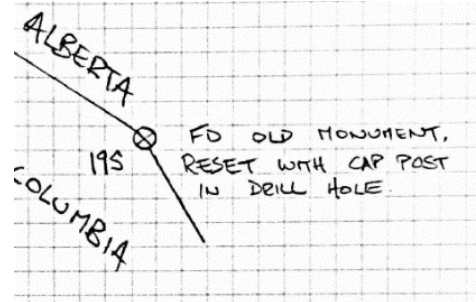 ALBERTA
19S
COLUMBIA
FD OLD MONUMENT,
RESET WITH CAP POST
IN DRILL HOLE.